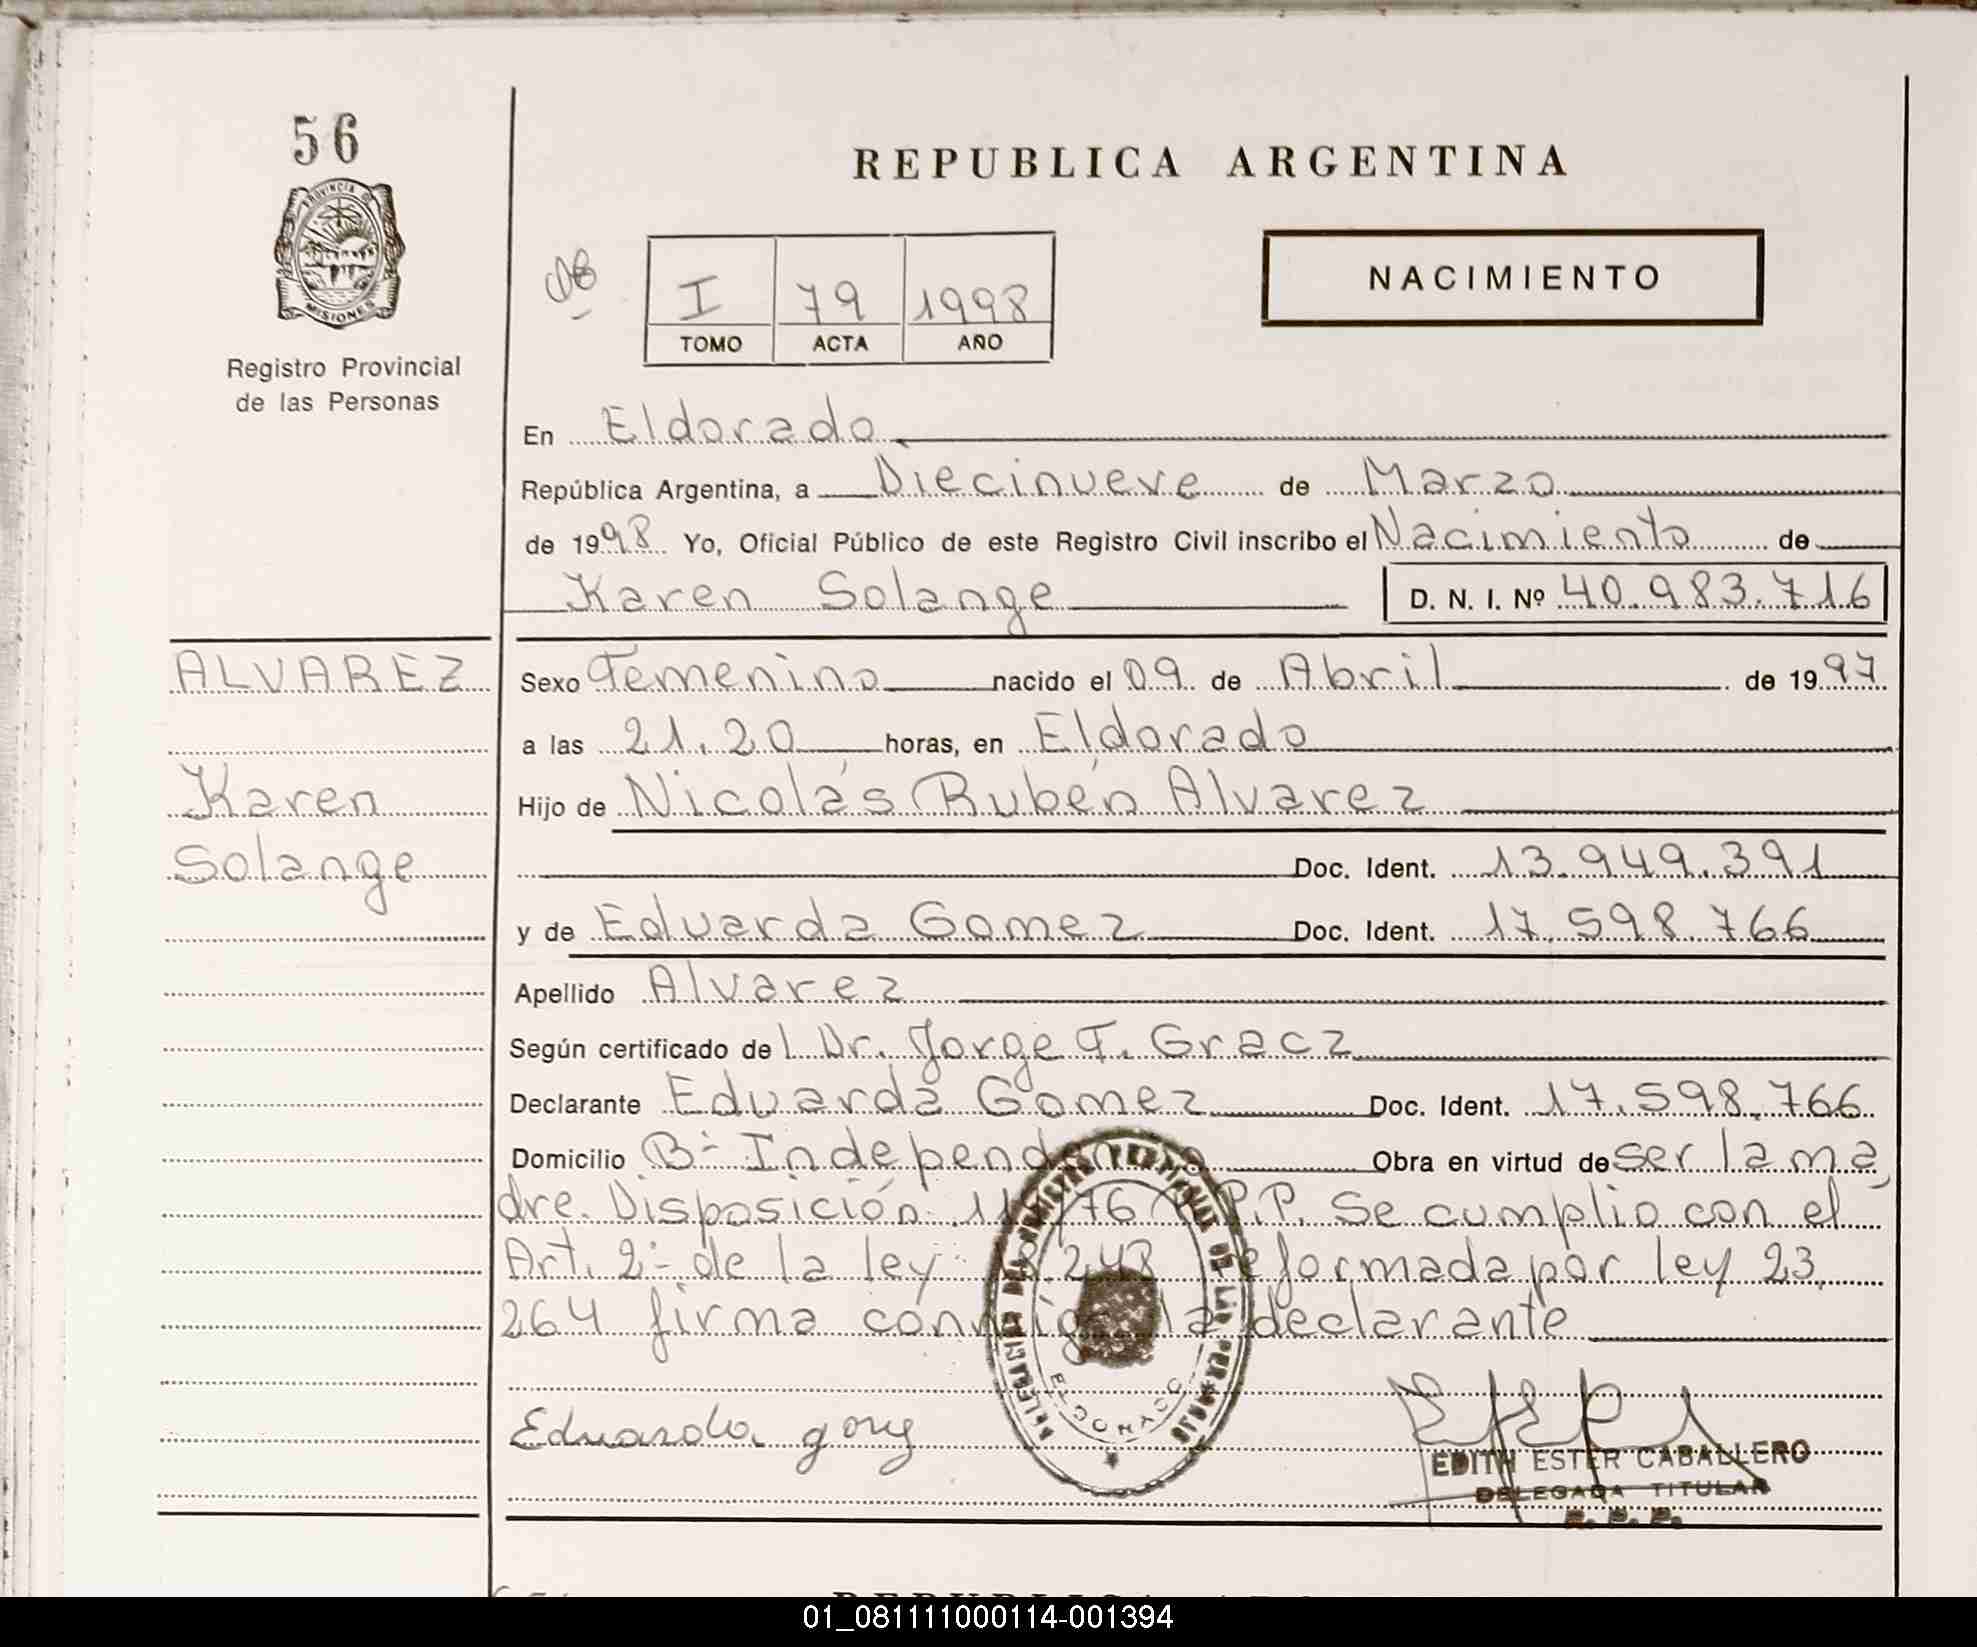 56
PROVINCIA DE
MISIONES
Registro Provincial
de las Personas
REPUBLICA ARGENTINA
I 79 1998
TOMO ACTA AÑO
NACIMIENTO
En Eldorado
República Argentina, a Diecinueve de Marzo
de 1998 Yo, Oficial Público de este Registro Civil inscribo el Nacimiento de
Karen Solange D. N. I. Nº 40.983.716
ALVAREZ
Karen
Solange
Sexo Femenino nacido el 09 de Abril de 1997
a las 21.20 horas, en Eldorado
Hijo de Nicolás Rubén Alvarez
Doc. Ident. 13.949.391
y de Eduarda Gomez Doc. Ident. 17.598.766
Apellido Alvarez
Según certificado del Dr. Jorge F. Gracz
Declarante Eduarda Gomez Doc. Ident. 17.598.766
Domicilio Bº Obra en virtud de ser la ma
dre. Disposición P.P. Se cumplio con el
Art. 2º de la ley 18.248 reformada por ley 23.
264 firma conmigo la declarante
DELEGACION DEL REGISTRO PROVINCIAL DE LAS PERSONAS
ELDORADO
Eduarda gomez
EDITH ESTER CABALLERO
DELEGADA TITULAR
R. P. P.
01_081111000114-001394